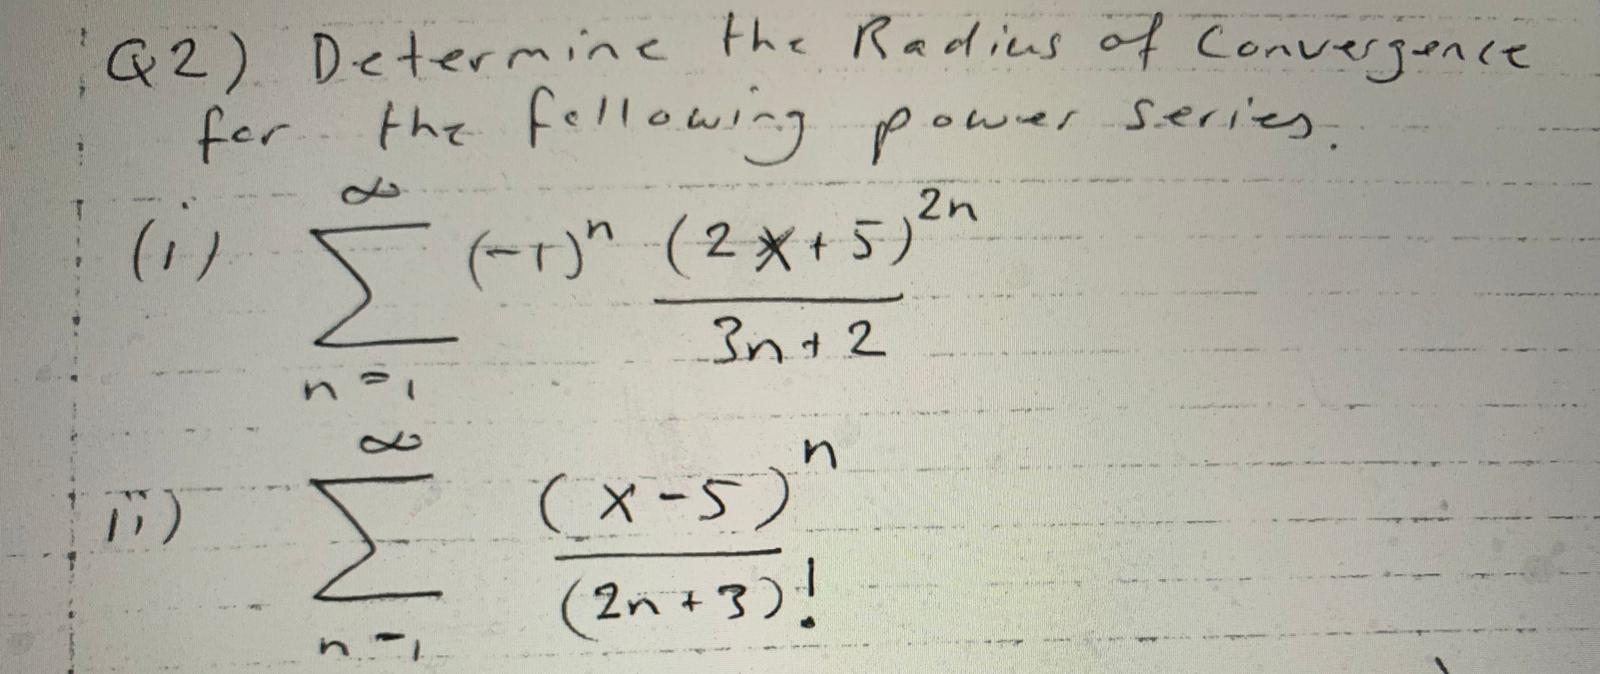 Q2) Determine the Radius of Convergence
for the following power series.
(i) ∞ ∑ n=1 (-1)ⁿ (2x+5)²ⁿ / 3n+2
ii) ∞ ∑ n=1 (x-5)ⁿ / (2n+3)!